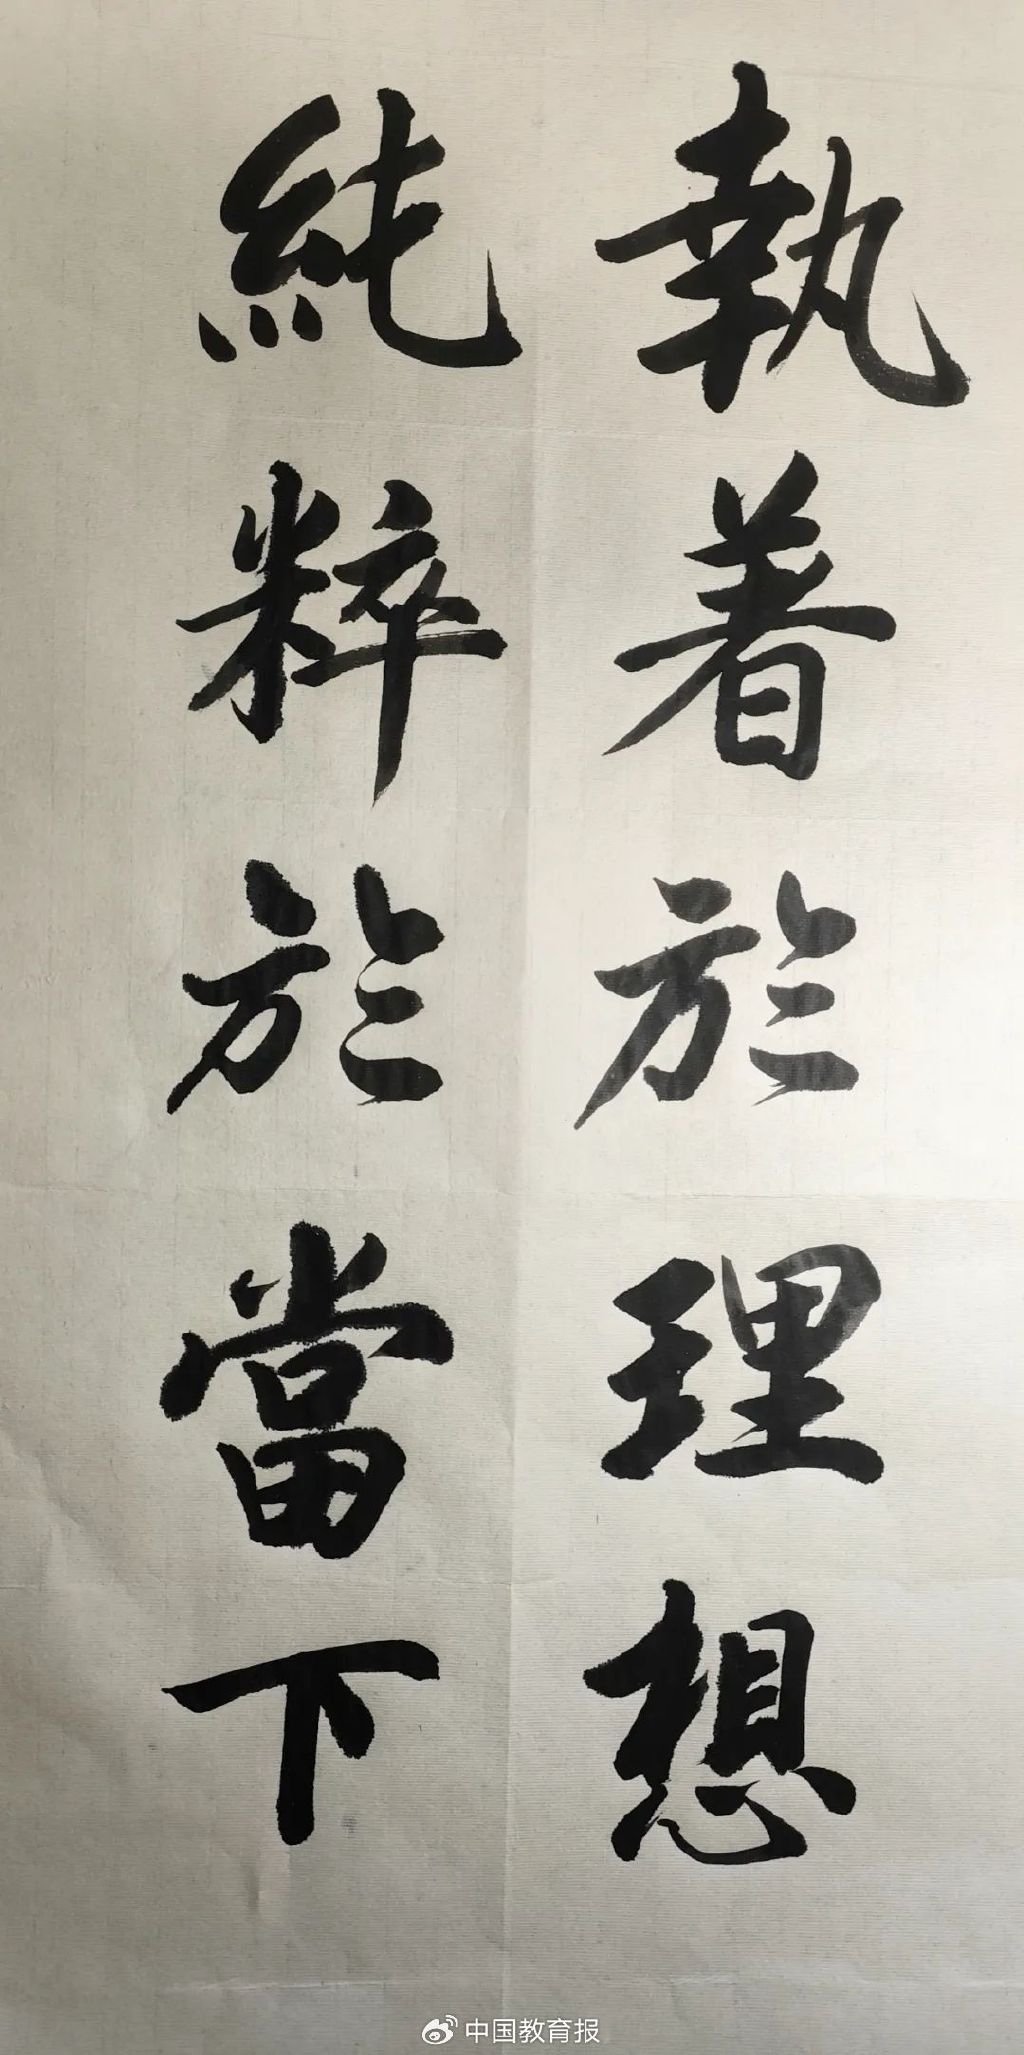 執着於理想
純粹於當下
中国教育报